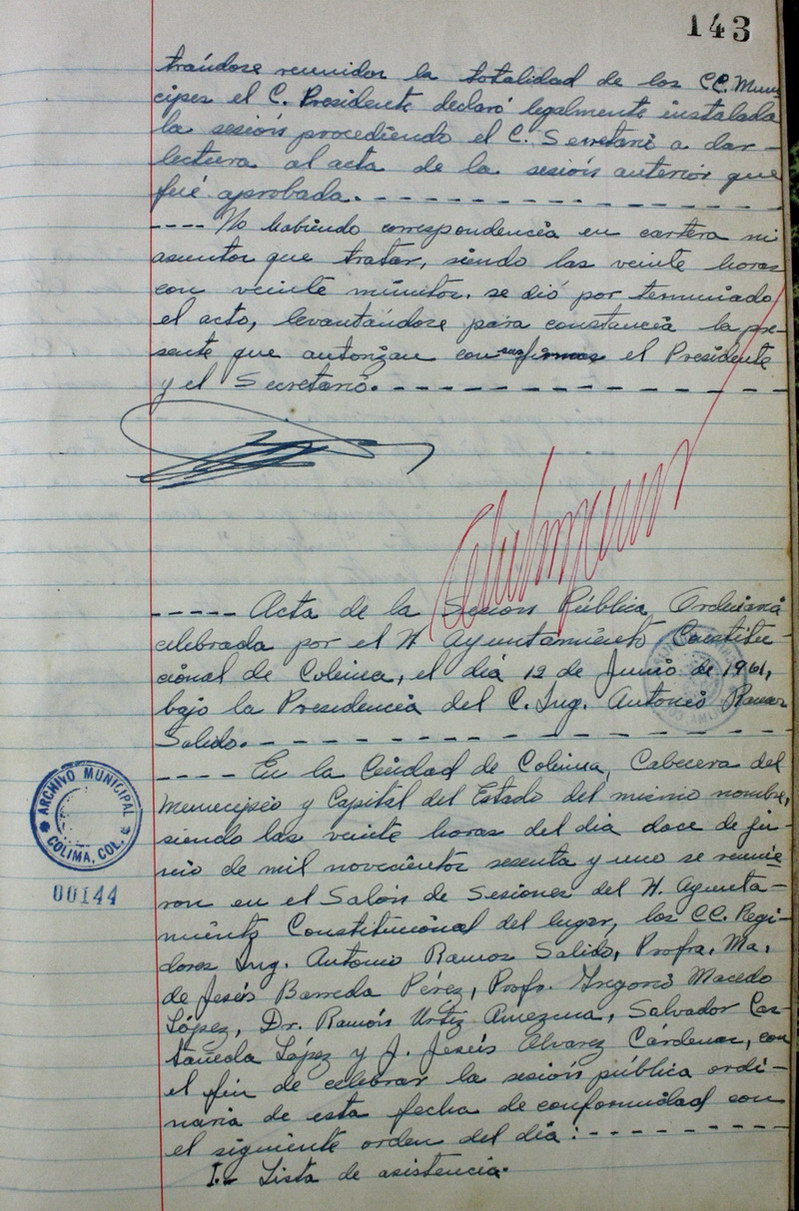 143
trándose reunidos la totalidad de los CC. Muní
cipes el C. Presidente declaró legalmente instalada
la sesión procediendo el C. Secretario a dar -
lectura al acta de la sesión anterior que
fué aprobada. - - - - - - - - - - - - - - -
- - - - No habiendo correspondencia en cartera ni
asuntos que tratar, siendo las veinte horas
con veinte minutos. se dió por terminado
el acto, levantándose para constancia la pre-
sente que autorizan con sus firmas el Presidente
y el Secretario. - - - - - - - - - - - - - - -
- - - - - Acta de la Sesión Pública Ordinaria
celebrada por el H. Ayuntamiento Constitu-
cional de Colima, el día 12 de Junio de 1961,
bajo la Presidencia del C. Ing. Antonio Ramos
Salido. - - - - - - - - - - - - - - - - - - -
- - - - En la Ciudad de Colima, Cabecera del
Municipio y Capital del Estado del mismo nombre,
siendo las veinte horas del día doce de ju-
nio de mil novecientos sesenta y uno se reunie
ron en el Salón de Sesiones del H. Ayunta-
miento Constitucional del lugar, los CC. Regi-
dores Ing. Antonio Ramos Salido, Profra. Ma.
de Jesús Barreda Pérez, Profr. Gregorio Macedo
López, Dr. Ramón Urtiz Amezcua, Salvador Cas-
tañeda López y J. Jesús Alvarez Cárdenas, con
el fin de celebrar la sesión pública ordi-
naria de esta fecha de conformidad con
el siguiente orden del día: - - - - - - - - -
I.- Lista de asistencia.
ARCHIVO MUNICIPAL
COLIMA, COL.
00144